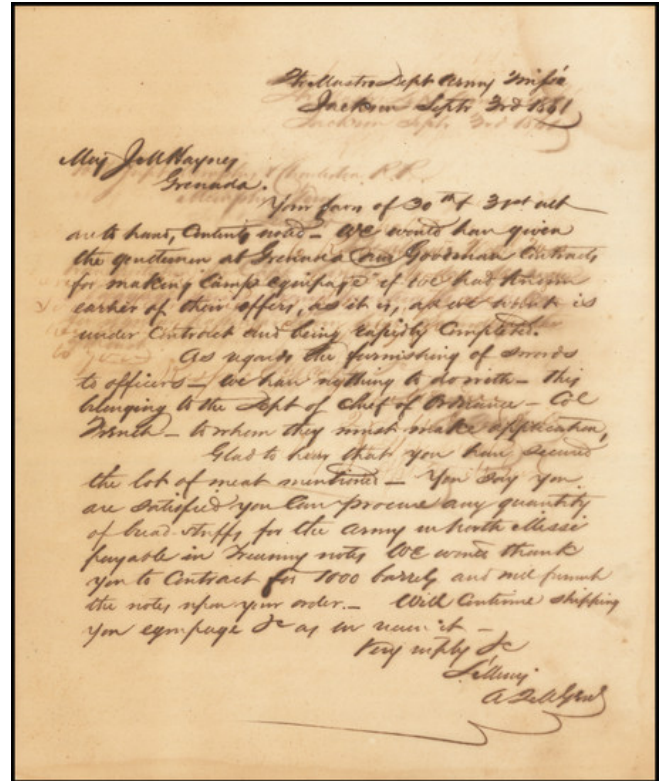 Qr Masters Dept Army Missi
Jackson Septr 3rd 1861
Maj J M Haynes
Grenada.
Your favrs of 30th & 31st ult
are to hand, Contents noted – We would have given
the gentlemen at Grenada and Goodman Contracts
for making Camp equipage if we had known
earlier of their offers, as it is, all we want is
under Contract and being rapidly Completed.
As regards the furnishing of swords
to officers – we have nothing to do with – this
belonging to the Dept of Chief of Ordinance – Col
French – to whom they must make application,
Glad to hear that you have secured
the lot of meat mentioned – You say you
are satisfied you Can procure any quantity
of bread stuffs, for the army in North Missi
payable in Treasury notes We would thank
you to Contract for 1000 barrels and will furnish
the notes upon your order. – Will Continue shipping
you equipage &c as we receive it –
Very resply &c